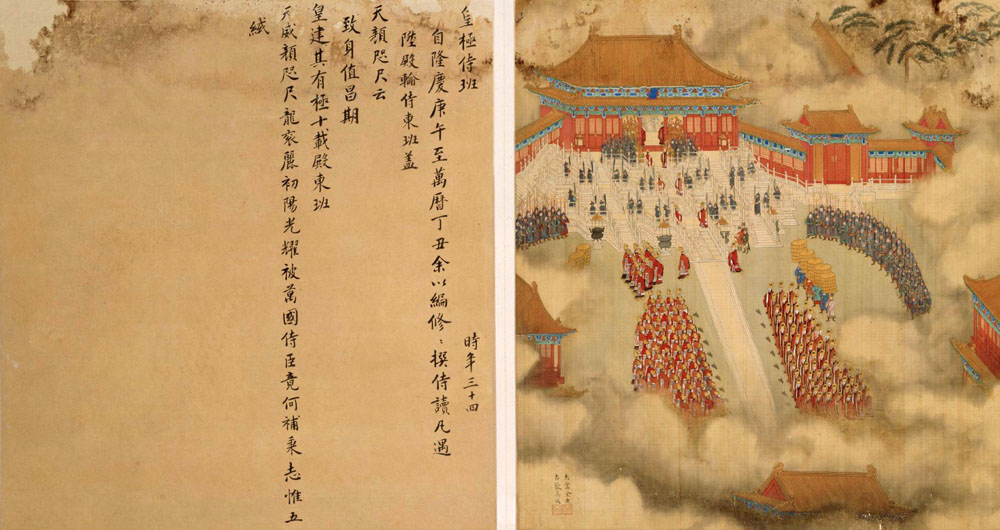 皇極侍班
時年三十四
自隆慶庚午至萬曆丁丑余以編修〻撰侍讀凡遇
陞殿輪侍東班蓋
天顏咫尺云
致身值昌期
皇建其有極十載殿東班
天威顏咫尺龍袞麗初陽光耀被萬國侍臣竟何補秉志惟五
絨